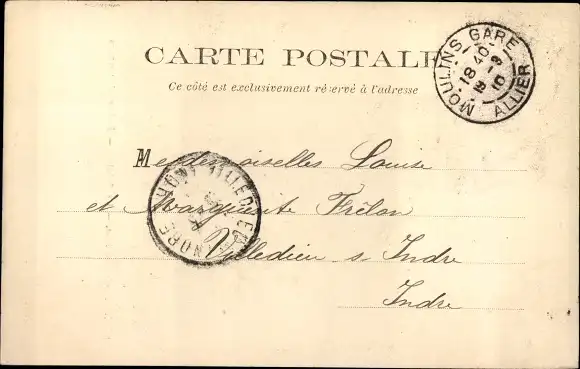 CARTE POSTALE
Ce côté est exclusivement réservé à l'adresse
MOULINS GARE
18 40
ALLIER
Mesdemoiselles Louise
et Marguerite Frélon
Villedieu s- Indre
Indre